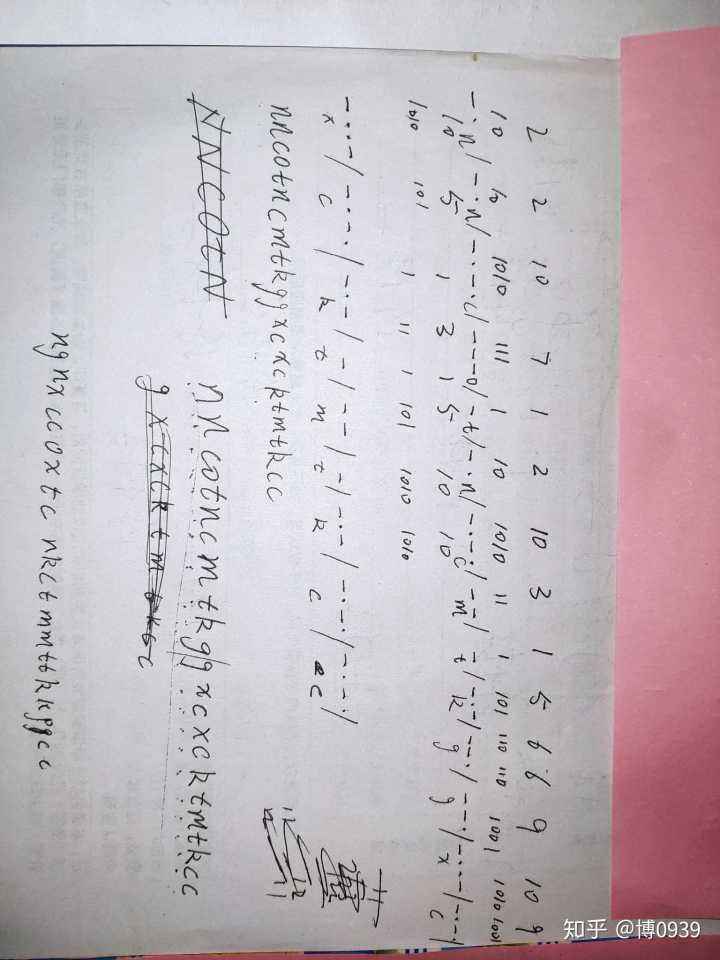 2 2 10 7 1 2 10 3 1 5 6 6 9 10 9
10 10 1010 111 1 10 1010 11 1 101 110 110 1001 1010 1001
-.n/-.n/-.-.c/---o/-t/-.n/-.-.c/--m/-t/-.-k/--.g/--.g/-..-x/-.-.c/
10 5 1 3 1 5 10 10
1010 101 1 11 1 101 1010 1010
-..-/-.-./-.-/-/--/-/-.-/-.-./-.-./
x c k t m t k c c
nncotncmtkggxcxcktmtkcc
NNCOtN
nncotncmtkggxcxcktmtkcc
gxcxcktmtkcc
ngnxccoxtc nkctmmttkkggcc
知乎 @博0939